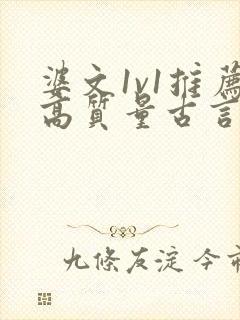 婆文1v1推薦
高質量古言
九條友淀今市